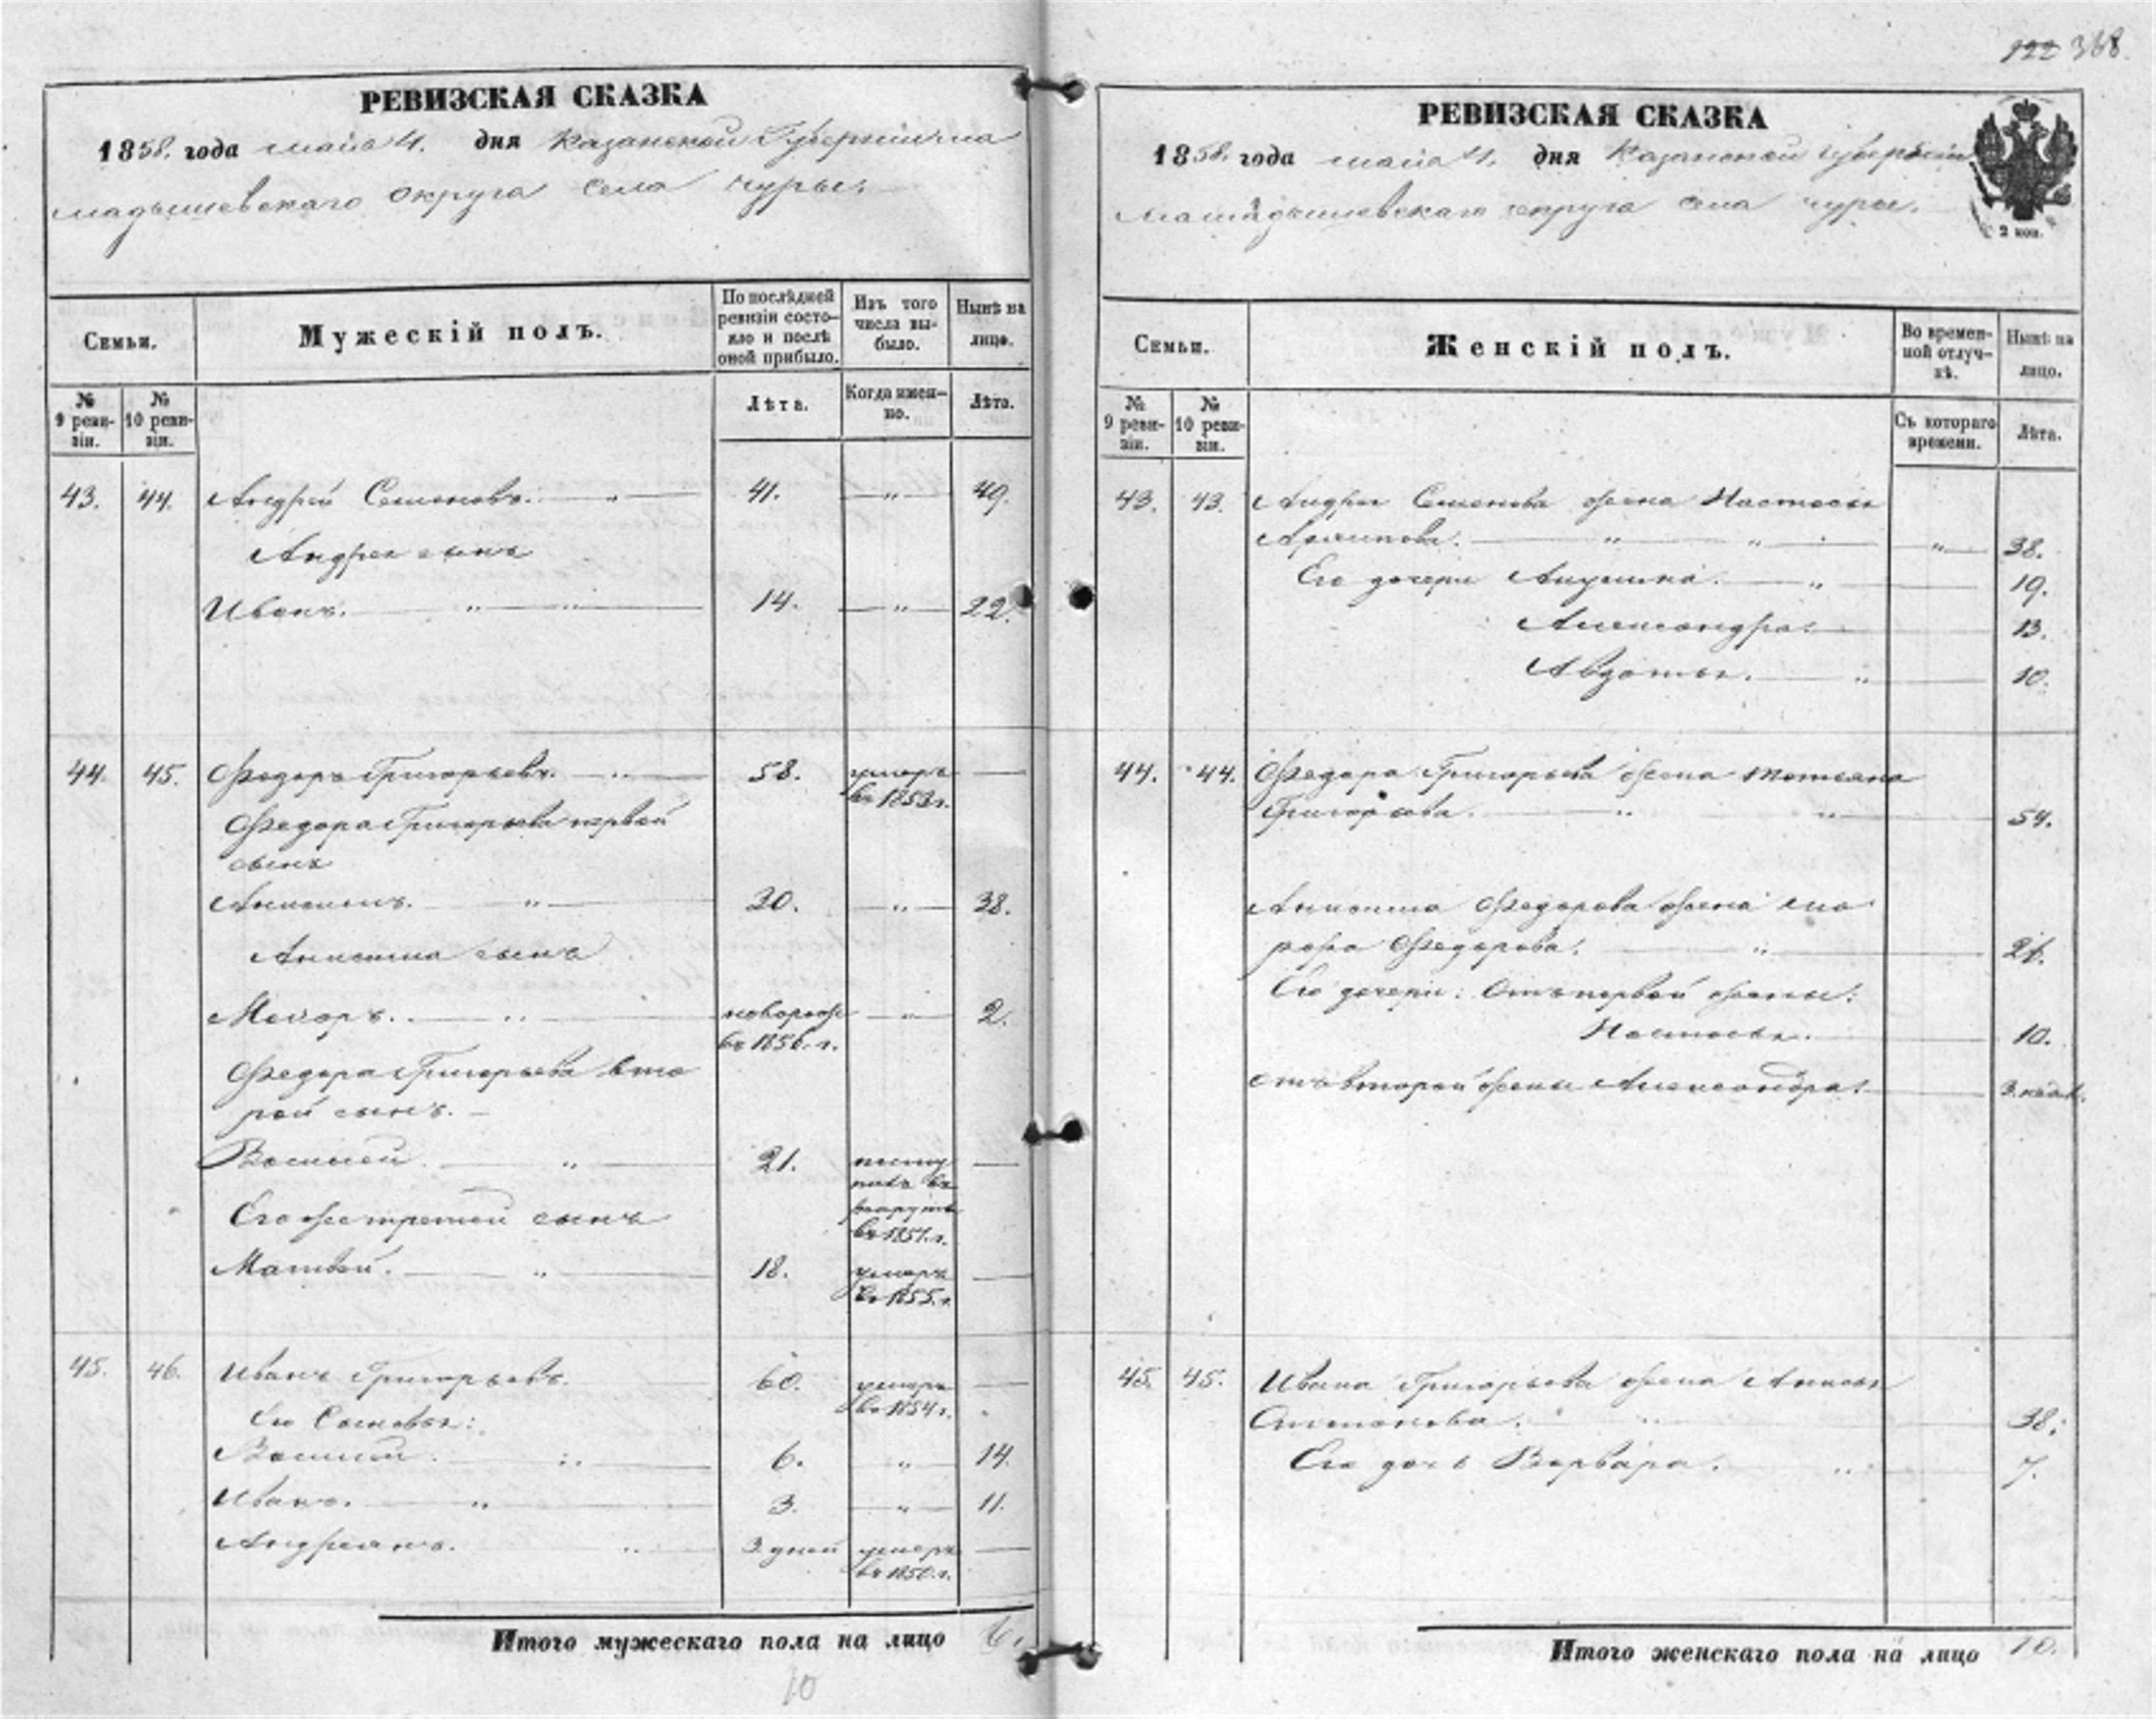 122 368.
РЕВИЗСКАЯ СКАЗКА
1858. года маія 4. дня Казанской Губерніи ма
мадышевскаго округа села чуры.
Семьи.
Мужескій полъ.
По послѣдней ревизіи состо-
яло и послѣ оной прибыло.
Изъ того числа вы-
было.
Нынѣ на лицо.
№ 9 реви-
зіи.
№ 10 реви-
зіи.
Лѣта.
Когда имен-
но.
Лѣта.
43. 44. Андрей Семеновъ. 41. 49.
Андрея сынъ
Иванъ. 14. 22.
44. 45. Федоръ Григорьевъ. 58. умеръ
въ 1853 г.
Федора Григорьева первой
сынъ
Анисимъ. 30. 38.
Анисима сынъ
Макаръ. новорож 2.
въ 1856. г.
Федора Григорьева вто
рой сынъ.
Василей 21. посту
въ
въ 1857. г.
Его же третей сынъ
Матвей. 18. умеръ
въ 1855. г.
45. 46. Иванъ Григорьевъ. 60. умеръ
въ 1854 г.
Его Сыновья:
Василей 6. 14.
Иванъ. 3. 11.
Андреянъ. 3 дней умеръ
въ 1850. г.
Итого мужескаго пола на лицо 6.
10
РЕВИЗСКАЯ СКАЗКА
1858. года маія 4. дня Казанской губерніи
мамадышевскаго округа села чуры.
2 коп.
Семьи.
Женскій полъ.
Во времен-
ной отлуч-
кѣ.
Нынѣ на лицо.
№ 9 реви-
зіи.
№ 10 реви-
зіи.
Съ котораго времени.
Лѣта.
43. 43. Андрея Семенова жена Настасья
38.
Его дочери 19.
Александра. 13.
Авдотья. 10.
44. 44. Федора Григорьева жена Татьяна
Григорьева. 54.
Анисима Федорова жена
Федорова. 21.
Его дочери: Отъ первой жены:
Настасья. 10.
отъ второй жены Александра. 3 нѣд.
45. 45. Ивана Григорьева жена
Степанова. 38.
Его дочь Варвара. 7.
Итого женскаго пола на лицо 10.